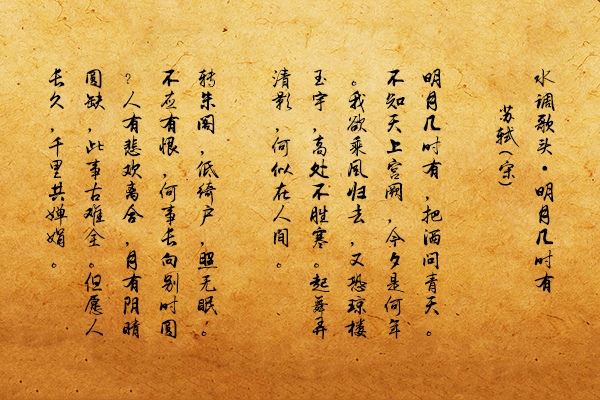 水调歌头·明月几时有
苏轼(宋)
明月几时有，把酒问青天。
不知天上宫阙，今夕是何年
。我欲乘风归去，又恐琼楼
玉宇，高处不胜寒。起舞弄
清影，何似在人间。
转朱阁，低绮户，照无眠。
不应有恨，何事长向别时圆
？人有悲欢离合，月有阴晴
圆缺，此事古难全。但愿人
长久，千里共婵娟。